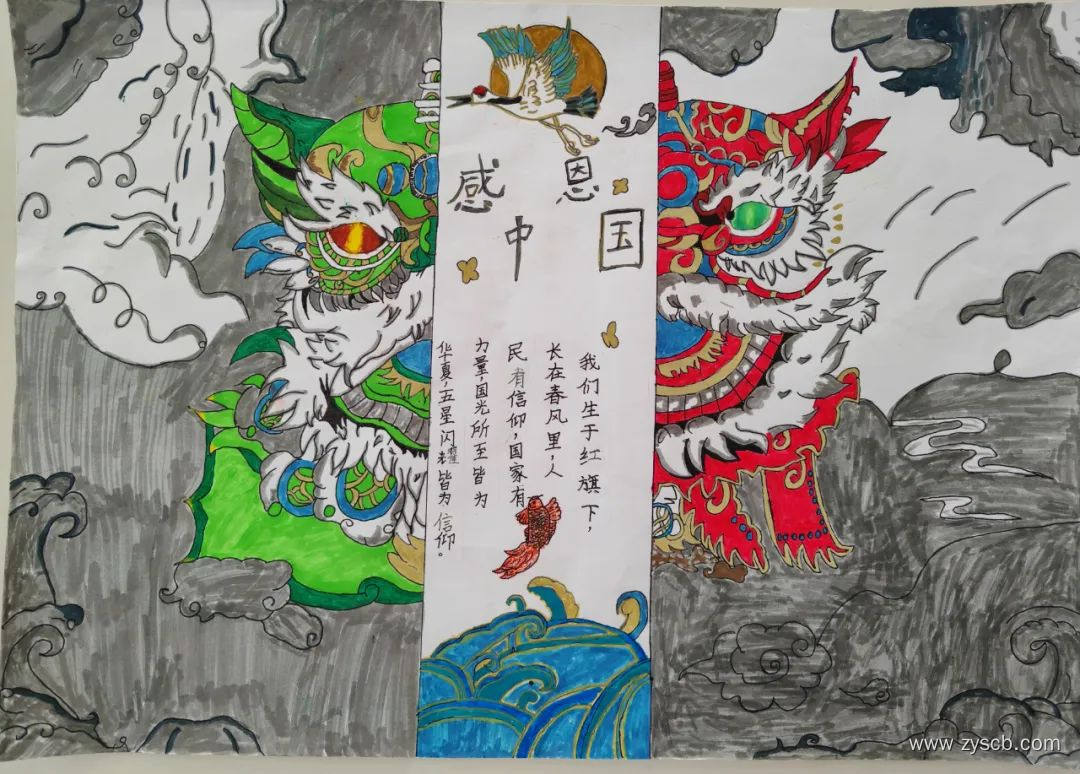 感恩
中国
我们生于红旗下，
长在春风里，人
民有信仰，国家有
力量，国光所至皆为
华夏，五星闪耀皆为信仰。
www.zyscb.com